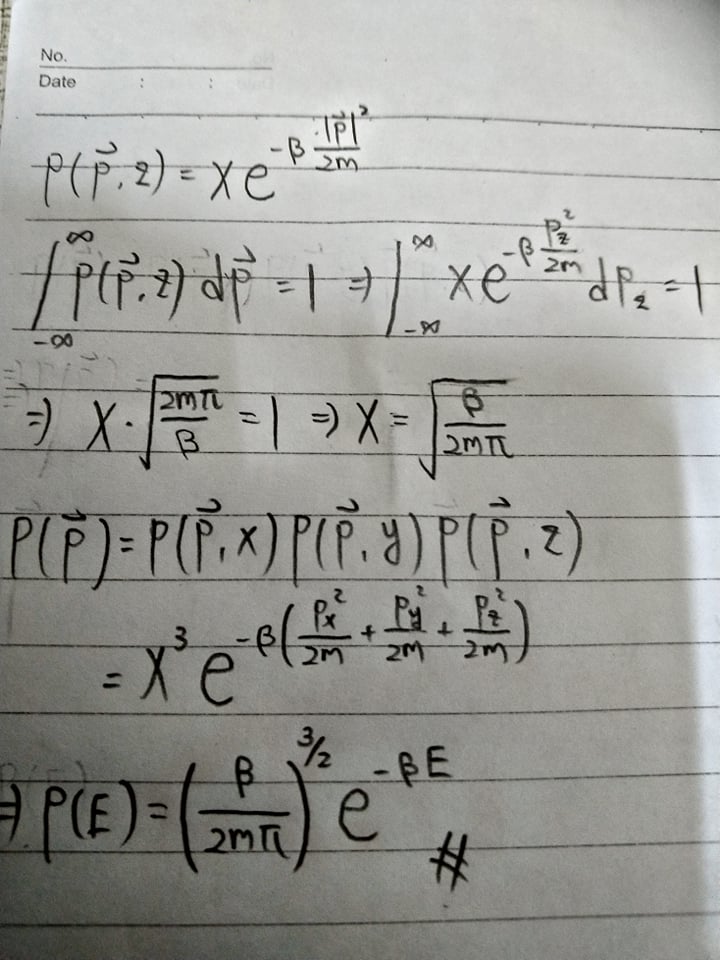 No.
Date : :
P(\vec{p}, z) = X e^{-\beta \frac{|\vec{p}|^2}{2m}}
\int_{-\infty}^{\infty} P(\vec{p}, z) d\vec{p} = 1 \Rightarrow \int_{-\infty}^{\infty} X e^{-\beta \frac{P_z^2}{2m}} dP_z = 1
\Rightarrow X \cdot \sqrt{\frac{2m\pi}{\beta}} = 1 \Rightarrow X = \sqrt{\frac{\beta}{2m\pi}}
P(\vec{p}) = P(\vec{p}, x) P(\vec{p}, y) P(\vec{p}, z)
= X^3 e^{-\beta \left( \frac{P_x^2}{2m} + \frac{P_y^2}{2m} + \frac{P_z^2}{2m} \right)}
\Rightarrow P(E) = \left( \frac{\beta}{2m\pi} \right)^{3/2} e^{-\beta E} #